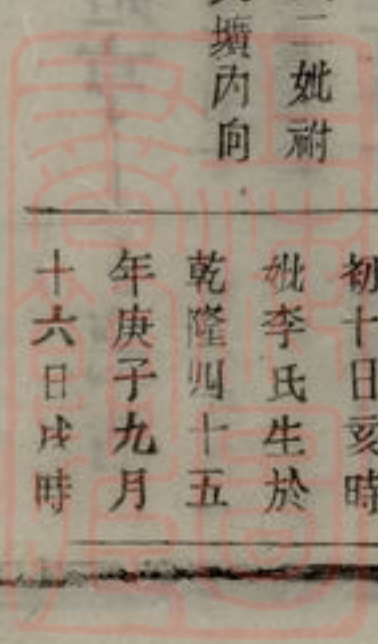 二妣祔
壙丙向
初十日亥時
妣李氏生於
乾隆四十五
年庚子九月
十六日戌時